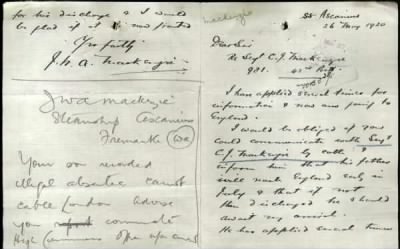 for his discharge & I would
be glad if it is now granted
Yrs faithly
J. W. A. Mackenzie
J W A Mackenzie
Steamship Ascanius
Fremantle (WA)
Your son recorded
illegal absentee cannot
cable London advise
you communicate
High Commrs office upon arrival
Mackenzie
SS Ascanius
26 May 1920
Dear Sir
Re Sergt C. J. Mackenzie
I have applied several times for
information & now am going to
England.
I would be obliged if you
could communicate with Sergt
C. J. Mackenzie by cable &
inform him that his father
will reach England early in
July & that if not
then discharged he should
await my arrival.
He has applied several times